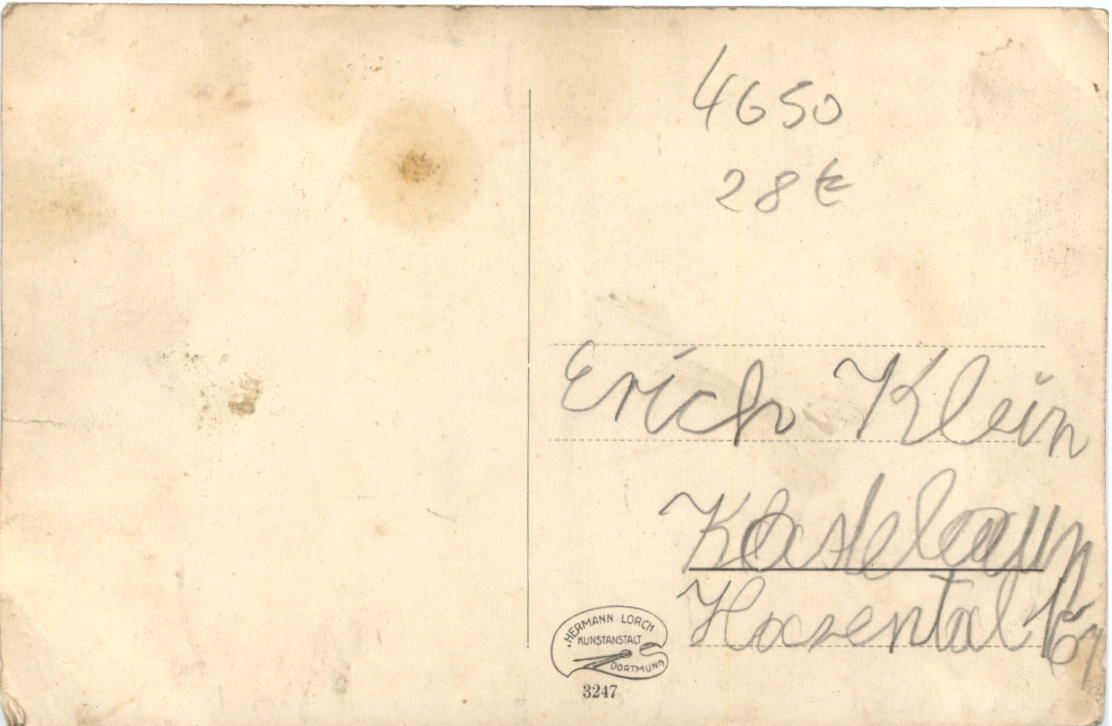 4650
28 €
Erich Klein
Kastelaun
Hasental
HERMANN LORCH
KUNSTANSTALT
DORTMUND
3247